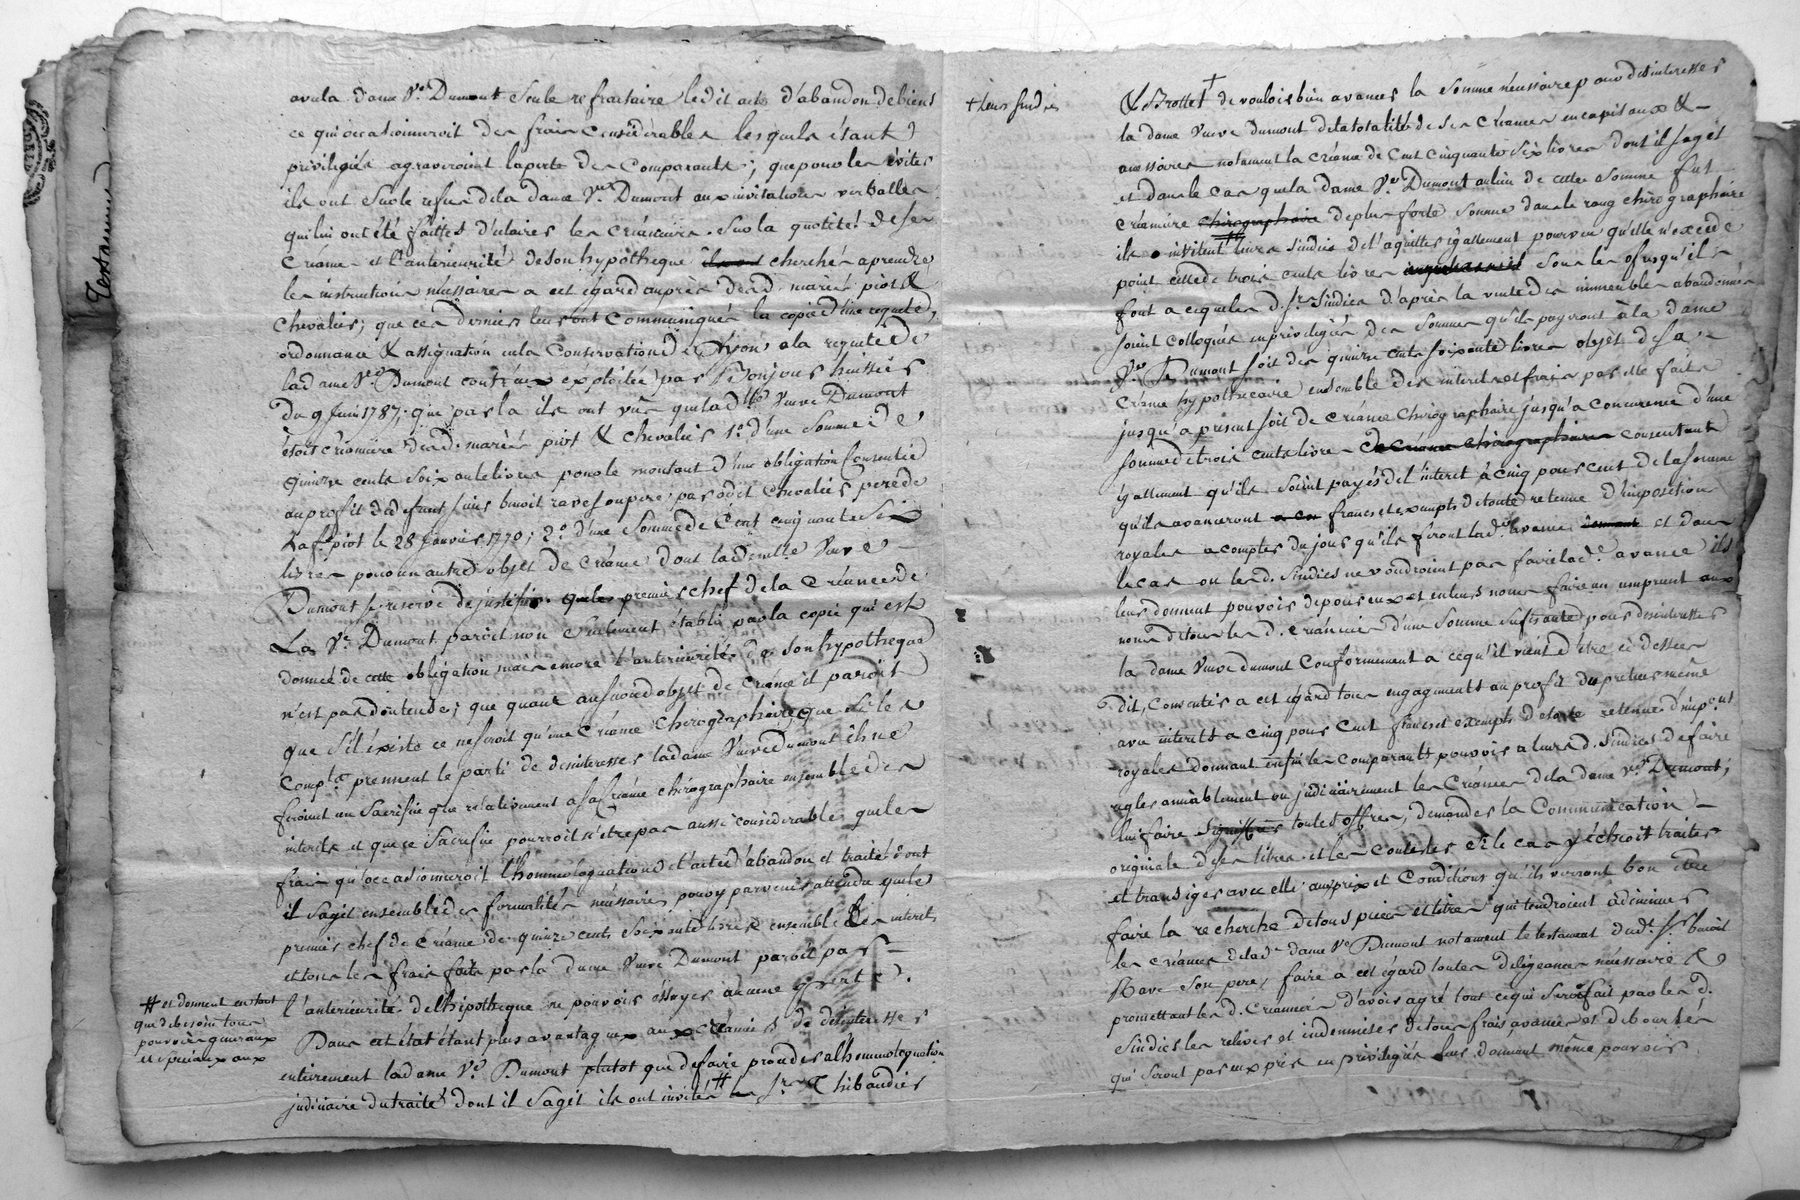 avec la dame Ve. Dumont seule refractaire ledit acte d'abandon de biens
ce qui occasionneroit des frais considerables lesquels étant
privilegiés agraveroient la perte des comparants; que pour les éviter
ils ont sur le refus de la dame Ve. Dumont aux invitations verballes
qui lui ont été faittes d'éclairer les créanciers sur la quotité de sa
créance et l'anteriorité de son hypotheque cherché a prendre
les instructions necessaires a cet égard auprès desd. mariés piot &
chevalier; que ces derniers leur ont communiqué la copie d'une requete,
ordonnance & assignation en la Conservation de Lyon a la requete de
lad. dame Ve. Dumont contr'eux exploitée par Bonjour huissier
du 9 Juin 1787; que par la ils ont vû que lad. Veuve Dumont
étoit créancière desd. mariés piot & chevalier 1°. d'une somme de
quinze cents soixante livres pour le montant d'une obligation consentie
au profit dud. defunt benoit rave son pere par chevalier pere de
la fe. piot le 28 Janvier 1770; 2°. d'une somme de cent cinquante six
livres pour un autre objet de créance dont lad. Veuve
Dumont se reserve de justifier. que le premier chef de la créance de
La Ve. Dumont paroit non seulement établi par la copie qui est
donnée de cette obligation mais encore l'anteriorité de son hypotheque
n'est pas douteuse; que quant au second objet de créance il paroit
que s'il existe ce ne seroit qu'une créance chirographaire que si les
comp.ts prennent le parti de desinteresser la dame Veuve Dumont ils ne
feroient un sacrifice que relativement a sa créance chirographaire ensemble des
interets et que ce sacrifice pourroit n'etre pas aussi considerable que les
frais qu'occasionneroit l'hommologuation de l'acte d'abandon et traité dont
il s'agit ensemble des formalités necessaires pour y parvenir attendu que le
premier chef de créance de quinze cents soixante livres ensemble les interets
et tous les frais faits par la dame Veuve Dumont paroit par
l'anteriorité de l'hipotheque ne pouvoir essuyer aucune perte.
Dans cet état étant plus avantageux aux créanciers de désinteresser
entierement la dame Ve. Dumont plutot que de faire proceder a l'hommologuation
judiciaire du traité dont il s'agit ils ont invité # les Srs. Thibaudier
# et donnent en tant
que de besoin tous
pouvoirs generaux
et speciaux aux
† leurs sindics
& Brottet † de vouloir bien avancer la somme necessaire pour desinteresser
la dame Veuve Dumont de la totalité de ses créances en capitaux &
accessoires notament la créance de cent cinquante six livres dont il s'agit
et dans le cas que la dame Ve. Dumont au lieu de cette somme fut
créanciere chirographaire de plus forte somme dans le rang chirographaire
ils invitent leurs sindics de l'aquitter egallement pourveu qu'elle n'excede
point celle de trois cents livres sous les ofres qu'ils
font a ce que les d. Srs. Sindics d'après la vente des immeubles abandonnés
soient colloqués en privilegiés des sommes qu'ils payeront à la dame
Ve. Dumont soit des quinze cents soixante livres objet de sa
créance hypothecaire ensemble des interets et frais par elle faits
jusqu'a present soit de créance chirographaire jusqu'a concurence d'une
somme de trois cents livres de créance chirographaire consentant
égallement qu'ils soient payés de l'interet à cinq pour cent de la somme
qu'ils avanceront francs et exempts de toute retenue d'imposition
royales a compter du jour qu'ils feront lad. avance et dans
le cas ou les d. Sindics ne voudroient pas faire lade. avance ils
leur donnent pouvoir de pour eux et en leurs noms faire un emprunt aux
noms de tous les d. créanciers d'une somme suffisante pour desinteresser
la dame Veuve dumont conformement a ce qu'il vient d'être ci dessus
dit, consentir a cet égard tous engagements au profit du preteur même
avec interets a cinq pour cent francs et exempts de toute retenue d'impots
royales donnant enfin les comparants pouvoir a leurs d. Sindics de faire
regler amiablement ou judiciairement les créances de la dame Ve. Dumont;
lui faire signiffier toutes offres, demander la communication
originale de ses titres et les contester et le cas y écheoit traiter
et transiger avec elle aux prix et conditions qu'ils verront bon être
faire la recherche de tous pieces et titres qui tendroient à diminuer
les créances de lad. dame Ve. Dumont notament le testament dud. Sr. benoit
Rave son pere, faire a cet égard toutes diligeances necessaires
promettant les d. Créanciers d'avoir agré tout ce qui sera fait par les d.
Sindics les relever et indemniser de tous frais avances et debourcés
qui seront par eux pris en privilegiés leur donnant même pouvoir
Testament